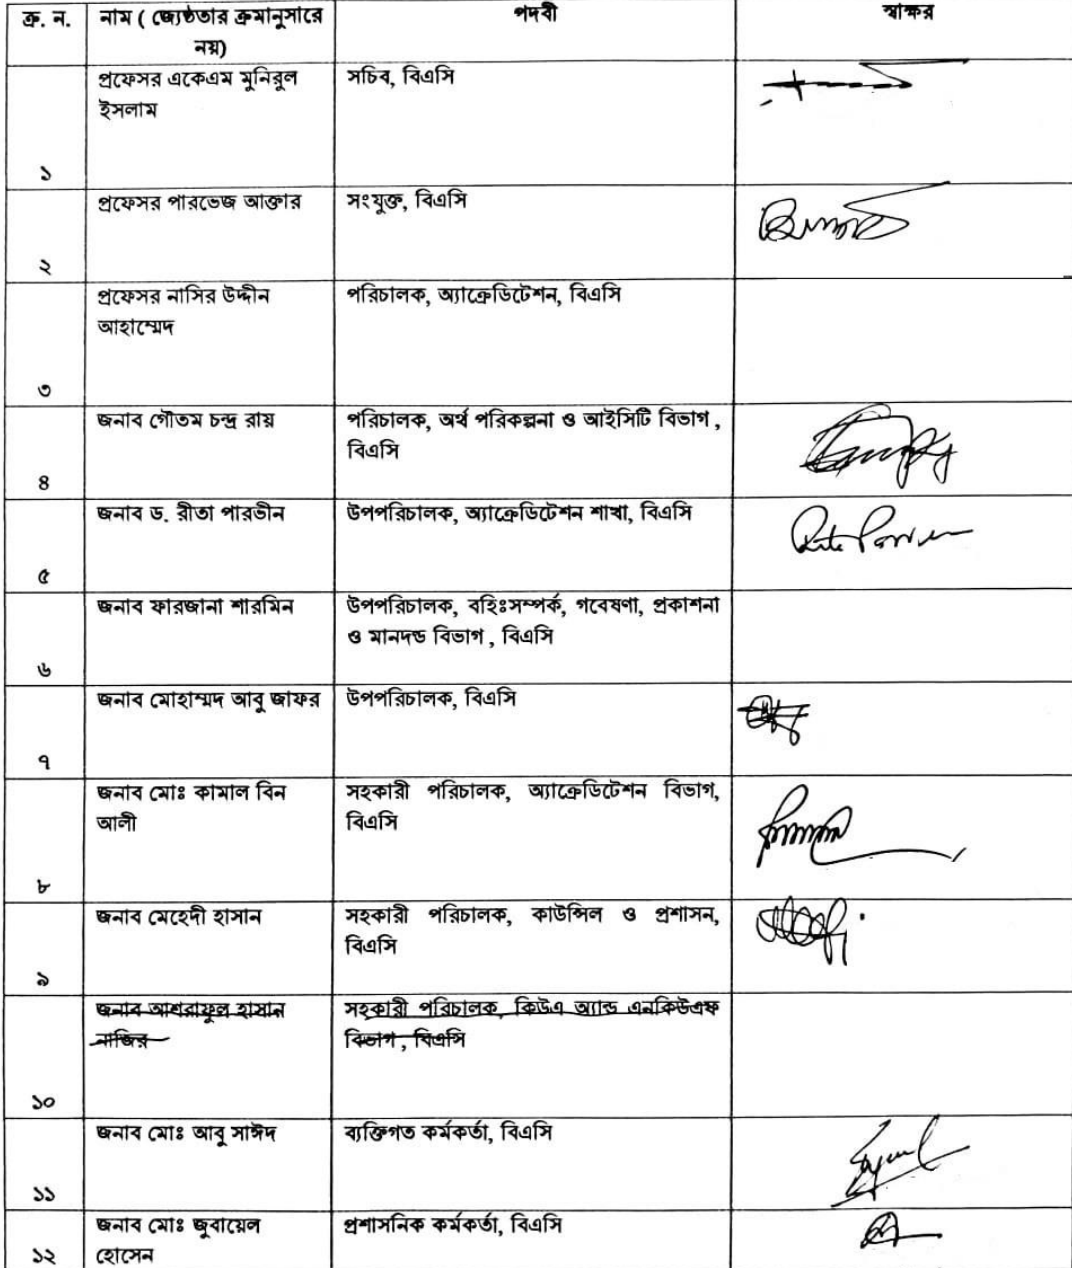 ক্র. ন. নাম ( জ্যেষ্ঠতার ক্রমানুসারে পদবী স্বাক্ষর
নয়)
প্রফেসর একেএম মুনিরুল সচিব, বিএসি
ইসলাম
১
প্রফেসর পারভেজ আক্তার সংযুক্ত, বিএসি
২
প্রফেসর নাসির উদ্দীন পরিচালক, অ্যাক্রেডিটেশন, বিএসি
আহাম্মেদ
৩
জনাব গৌতম চন্দ্র রায় পরিচালক, অর্থ পরিকল্পনা ও আইসিটি বিভাগ ,
বিএসি
৪
জনাব ড. রীতা পারভীন উপপরিচালক, অ্যাক্রেডিটেশন শাখা, বিএসি
Rita Parvin
৫
জনাব ফারজানা শারমিন উপপরিচালক, বহিঃসম্পর্ক, গবেষণা, প্রকাশনা
ও মানদন্ড বিভাগ , বিএসি
৬
জনাব মোহাম্মদ আবু জাফর উপপরিচালক, বিএসি
৭
জনাব মোঃ কামাল বিন সহকারী পরিচালক, অ্যাক্রেডিটেশন বিভাগ,
আলী বিএসি
৮
জনাব মেহেদী হাসান সহকারী পরিচালক, কাউন্সিল ও প্রশাসন,
বিএসি
৯
জনাব আশরাফুল হাসান সহকারী পরিচালক, কিউএ অ্যান্ড এনকিউএফ
নাজির বিভাগ , বিএসি
১০
জনাব মোঃ আবু সাঈদ ব্যক্তিগত কর্মকর্তা, বিএসি
১১
জনাব মোঃ জুবায়েল প্রশাসনিক কর্মকর্তা, বিএসি
১২ হোসেন